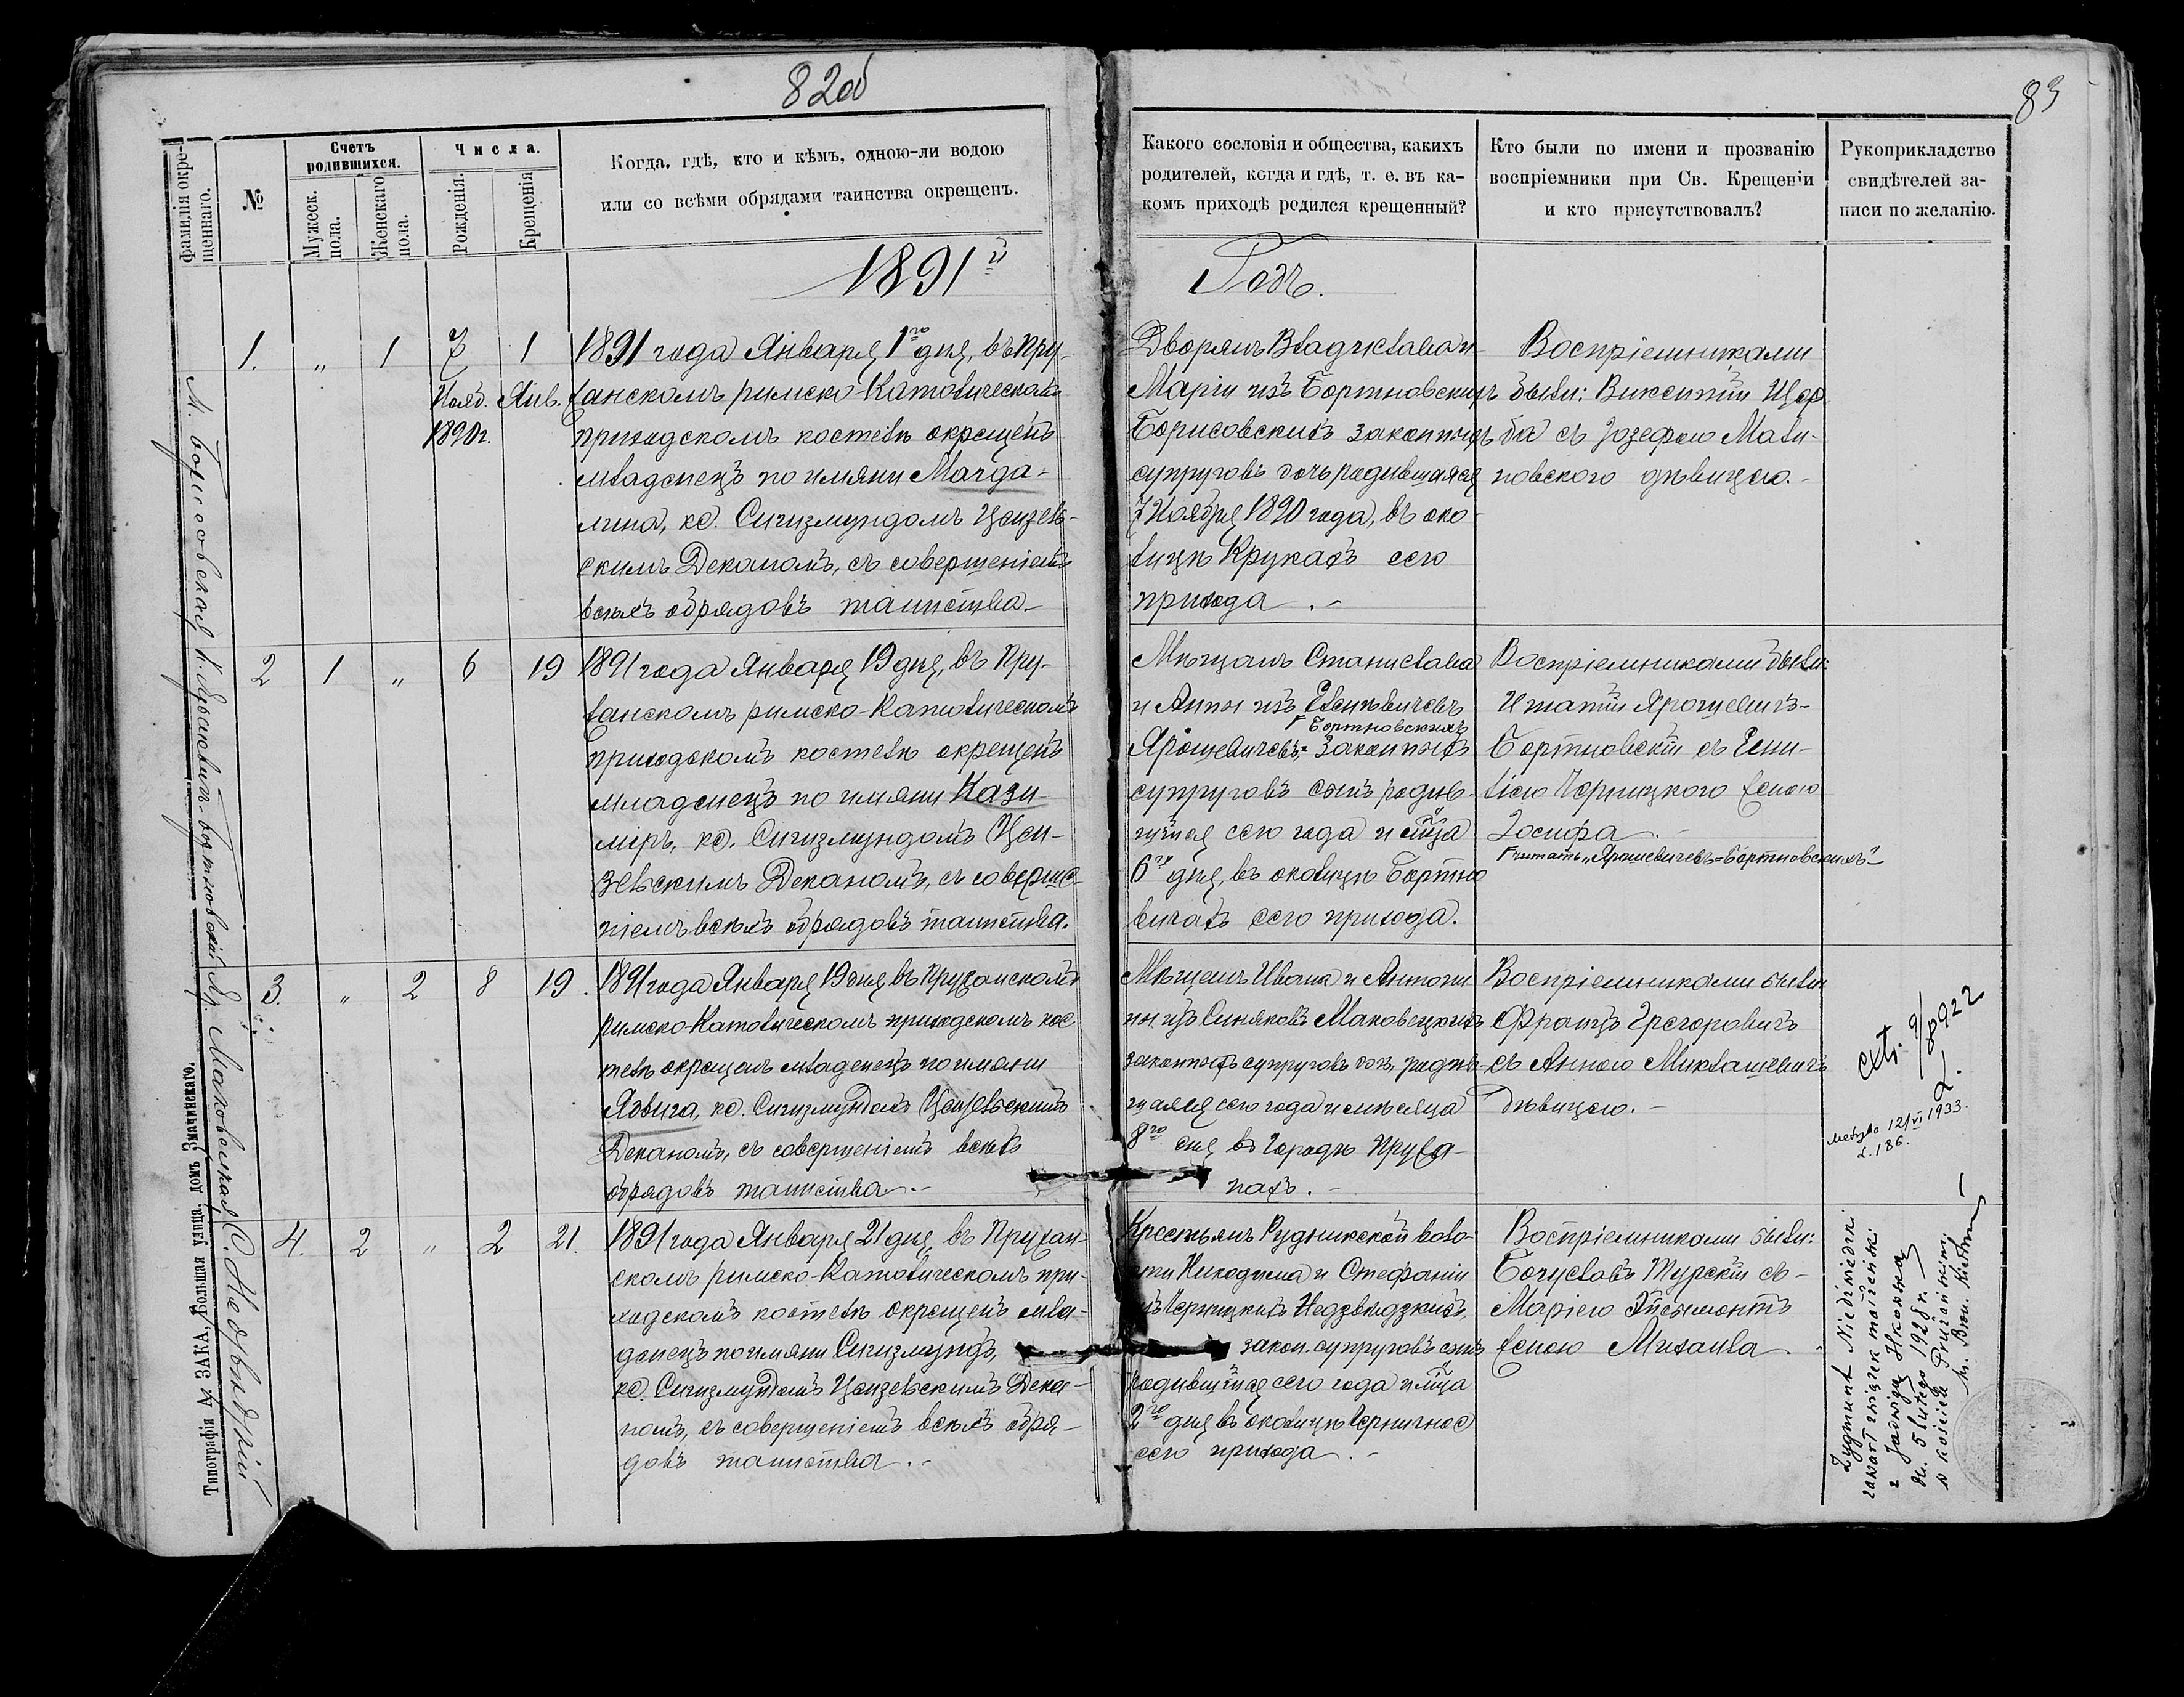 82об
83
Фамилія окре-
щеннаго.
№
Счетъ
родившихся.
Мужеск.
пола.
Женскаго
пола.
Числа.
Рожденія.
Крещенія
Когда, гдѣ, кто и кѣмъ, одною-ли водою
или со всѣми обрядами таинства окрещенъ.
Какого сословія и общества, какихъ
родителей, когда и гдѣ, т. е. въ ка-
комъ приходѣ родился крещенный?
Кто были по имени и прозванію
воспріемники при Св. Крещеніи
и кто присутствовалъ?
Рукоприкладство
свидѣтелей за-
писи по желанію.
1891й
Годъ.
М. Борисовская
1. „ 1 7 1
Нояб. Янв.
1890 г.
1891 года Января 1го дня, въ Пру-
жанскомъ римско-Католическомъ
приходскомъ костелѣ окрещенъ
младенецъ по имяни Магда-
лина, кс. Сигизмундомъ
скимъ Деканомъ, съ совершеніемъ
всѣхъ обрядовъ таинства.
Дворянъ Владислава и
Маріи изъ Бортновскихъ
Борисовскихъ законныхъ
супруговъ дочь родившаяся
7 Ноября 1890 года, въ око-
лицѣ Крукахъ сего
прихода.
Воспріемниками
были: Викентій Щер
ба съ Іозефою Мали-
новского дѣвицею.
К. Ярошевичъ-Бортновскій Яр.
2 1 „ 6 19
1891 года Января 19 дня, въ Пру-
жанскомъ римско-Католическомъ
приходскомъ костелѣ окрещенъ
младенецъ по имяни Кази-
міръ, кс. Сигизмундомъ Цеи-
зевскимъ Деканомъ, съ соверше-
ніемъ всѣхъ обрядовъ таинства.
Мѣщанъ Станислава
и Анны изъ
Бортновскихъ
Ярошевичевъ= законныхъ
супруговъ сынъ родив-
шійся сего года и мѣсяца
6го дня, въ околицѣ Бортно
вичахъ сего прихода.
Воспріемниками были:
Игнатій Ярошевичъ-
Бортновскій съ Еми-
ліею Черницкого женою
Іосифа.
читать „Ярошевичевъ=Бортновскихъ“
Я. Маковецкая
3. „ 2 8 19.
1891 года Января 19 дня въ Пружанскомъ
римско-Католическомъ приходскомъ кос
телѣ окрещенъ младенецъ по имяни
Ядвига, кс. Сигизмундомъ Цеизевскимъ
Деканомъ, съ совершеніемъ всѣхъ
обрядовъ таинства.
Мѣщанъ Ивана и Антони
ны изъ Синяковъ Маковецкихъ
законныхъ супруговъ дочь, родив-
шаяся сего года и мѣсяца
8го дня въ Городѣ Пружа-
нахъ.
Воспріемниками были
Францъ Грегоровичъ
съ Анною Миклашевичъ
дѣвицею.
extr.
1922
metryka 12/VI 1933.
L. 186.
С. Недзвѣдзкій
4. 2 „ 2 21.
1891 года Января 21 дня въ Пружан-
скомъ римско-Католическомъ при-
ходскомъ костелѣ окрещенъ мла-
денецъ по имяни Сигизмундъ,
кс. Сигизмундомъ Цеизевскимъ Дека-
номъ, съ совершеніемъ всѣхъ обря-
довъ таинства.
Крестьянъ Рудникской воло-
сти Никодима и Стефаніи
изъ Черницкихъ Недзвѣдзкихъ,
закон. супруговъ сынъ
родившійся сего года и мѣсяца
2го дня въ околицѣ Черничное
сего прихода.
Воспріемниками были:
Богуславъ Турскій съ
Маріею
женою Михаила.
Zygmunt Niedźwiedzki
zawarł związek małżeński
z Jadwigą
dn. 5 lutego 1928 r.
w kościele Prużańskim.
Типографія Д. ЗАКА, Большая улица, домъ Значинскаго.